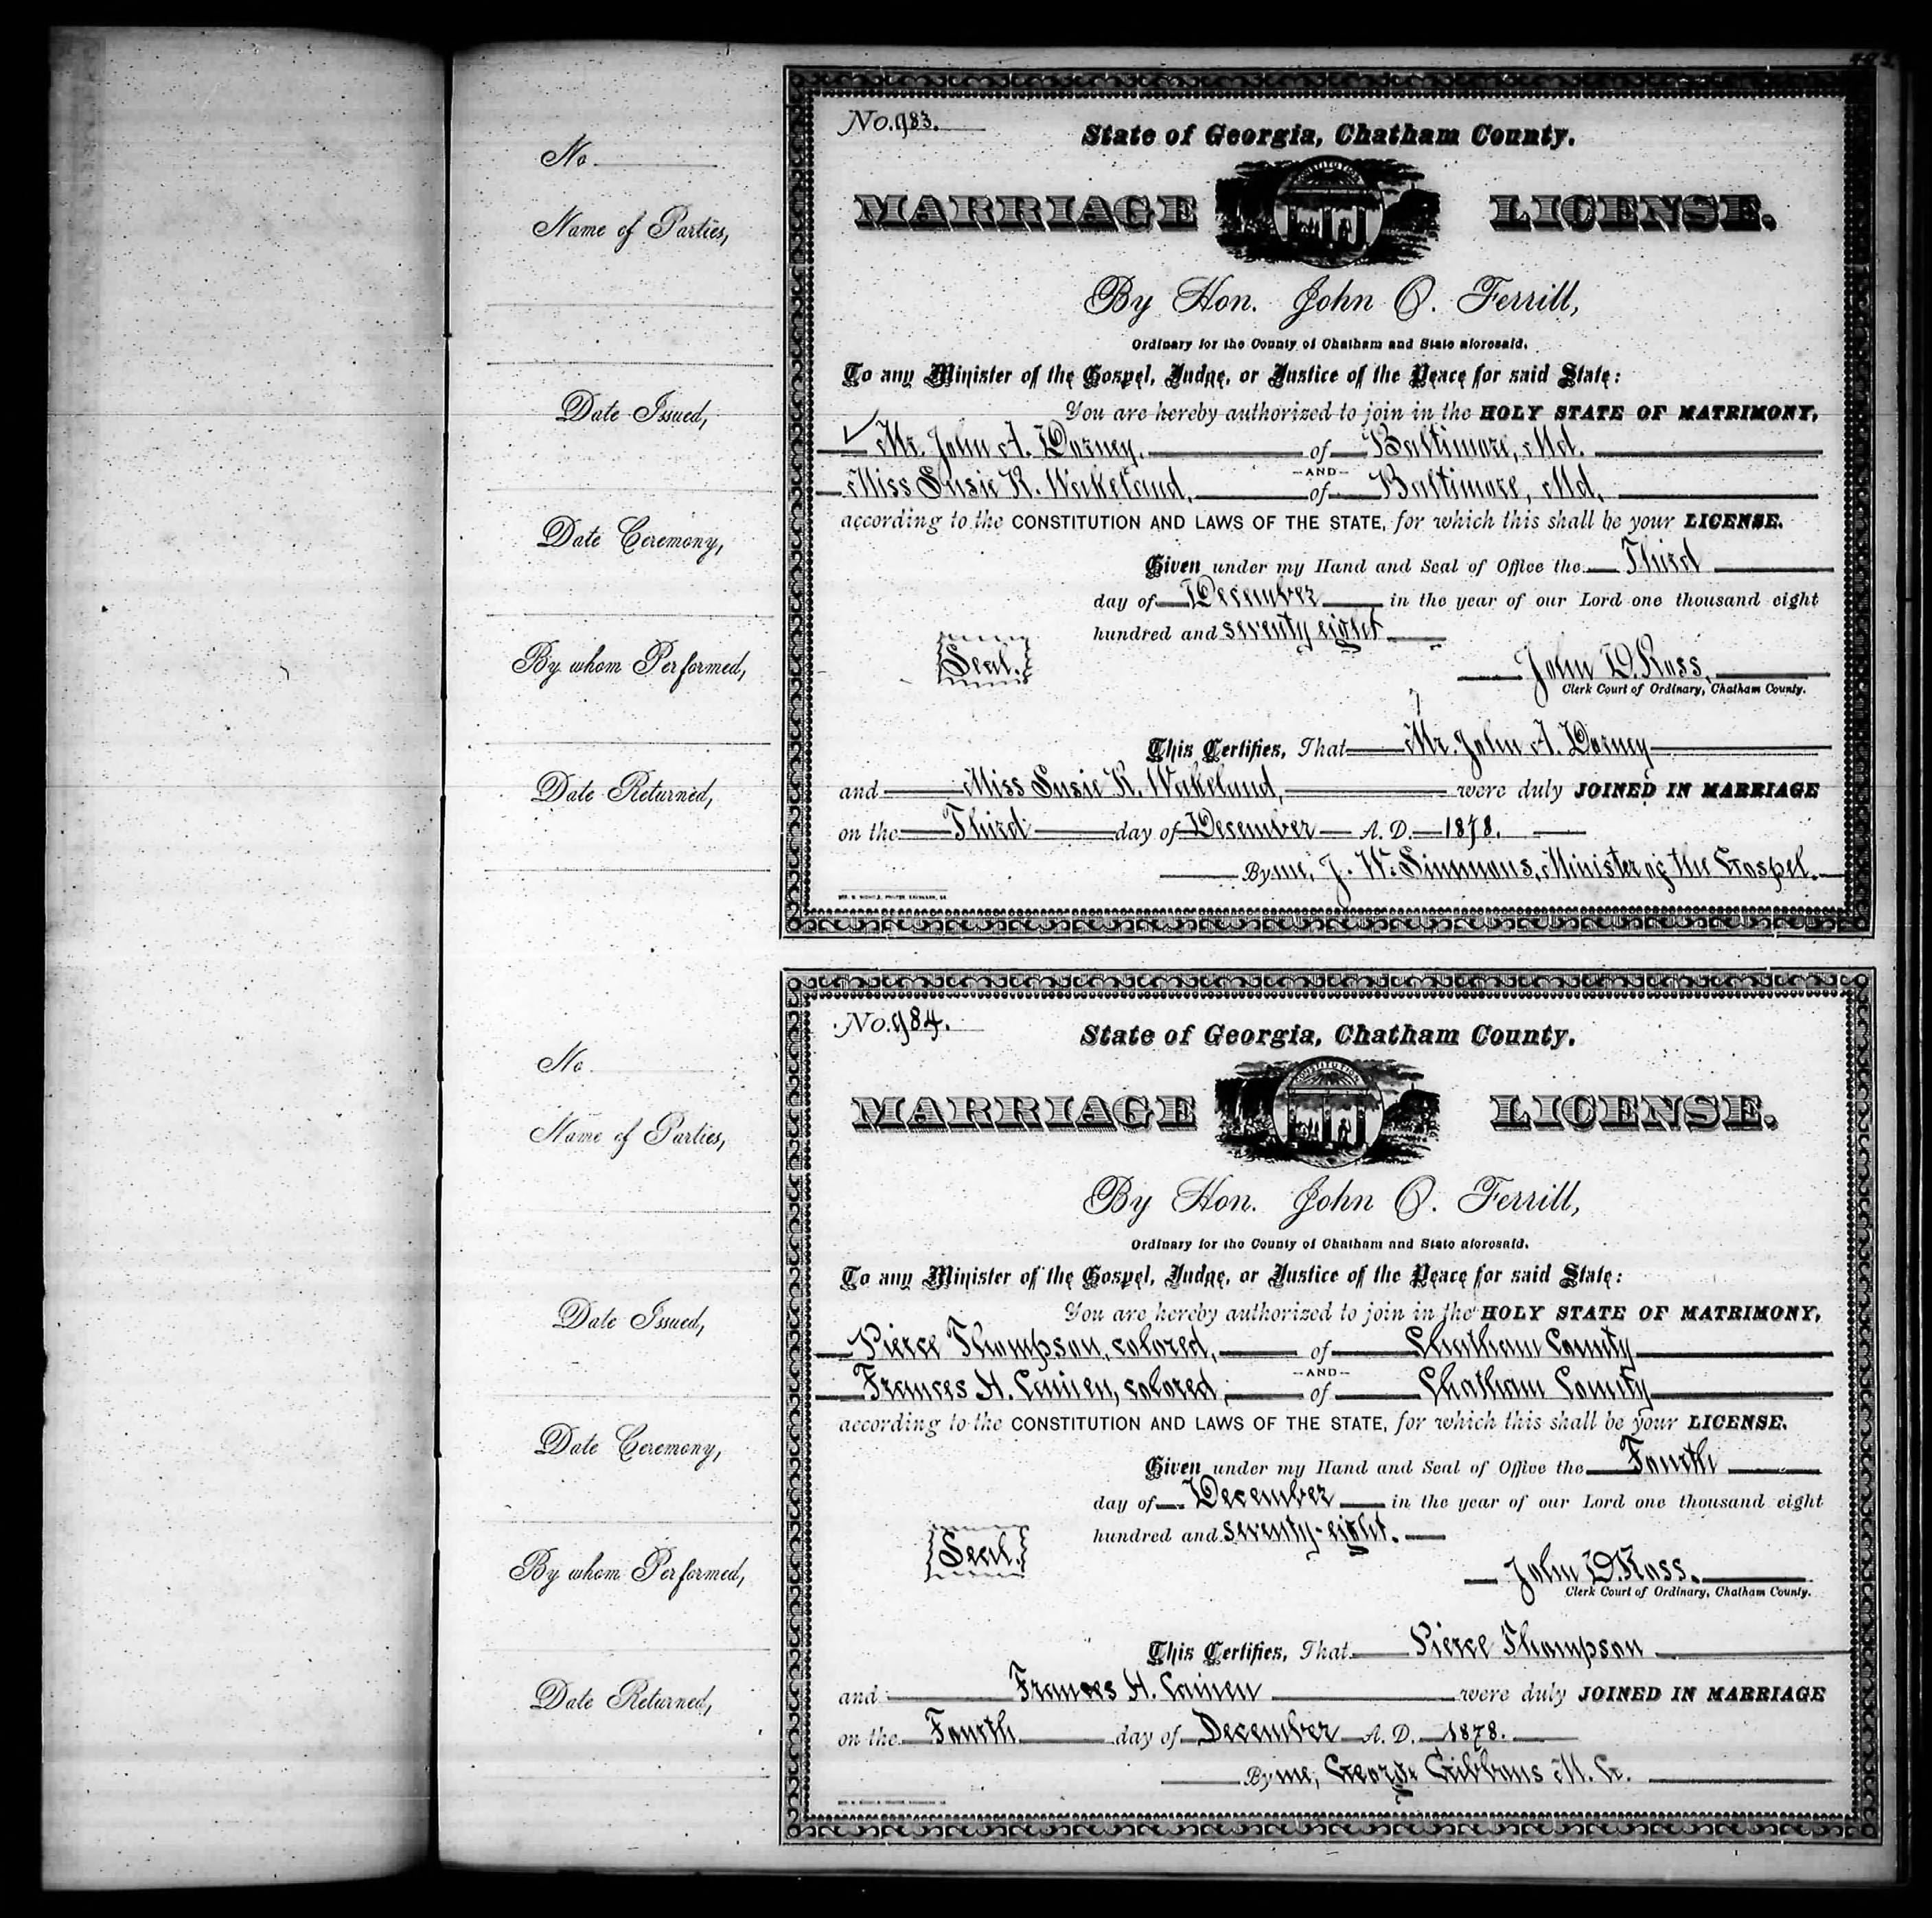 No.
Name of Parties,
Date Issued,
Date Ceremony,
By whom Performed,
Date Returned,
No. 983.
State of Georgia, Chatham County.
MARRIAGE LICENSE.
By Hon. John O. Ferrill,
Ordinary for the County of Chatham and State aforesaid.
To any Minister of the Gospel, Judge, or Justice of the Peace for said State:
You are hereby authorized to join in the HOLY STATE OF MATRIMONY,
Mr. John A. Dorney, of Baltimore, Md.
AND
Miss Susie K. Wakeland, of Baltimore, Md,
according to the CONSTITUTION AND LAWS OF THE STATE, for which this shall be your LICENSE.
Given under my Hand and Seal of Office the Third
day of December in the year of our Lord one thousand eight
hundred and seventy eight
Seal.
John D. Ross,
Clerk Court of Ordinary, Chatham County.
This Certifies, That Mr. John A. Dorney
and Miss Susie K. Wakeland, were duly JOINED IN MARRIAGE
on the Third day of December A. D. 1878.
By me, J. W. Simmons, Minister of the Gospel.
No.
Name of Parties,
Date Issued,
Date Ceremony,
By whom Performed,
Date Returned,
No. 984.
State of Georgia, Chatham County.
MARRIAGE LICENSE.
CONSTITUTION
By Hon. John O. Ferrill,
Ordinary for the County of Chatham and State aforesaid.
To any Minister of the Gospel, Judge, or Justice of the Peace for said State:
You are hereby authorized to join in the HOLY STATE OF MATRIMONY,
Pierce Thompson, colored, of Chatham County
AND
Frances H. Cainen, colored, of Chatham County
according to the CONSTITUTION AND LAWS OF THE STATE, for which this shall be your LICENSE.
Given under my Hand and Seal of Office the Fourth
day of December in the year of our Lord one thousand eight
hundred and seventy-eight.
Seal.
John D. Ross.
Clerk Court of Ordinary, Chatham County.
This Certifies, That Pierce Thompson
and Frances H. Cainen were duly JOINED IN MARRIAGE
on the Fourth day of December A. D. 1878.
By me, George Gibbons M. G.